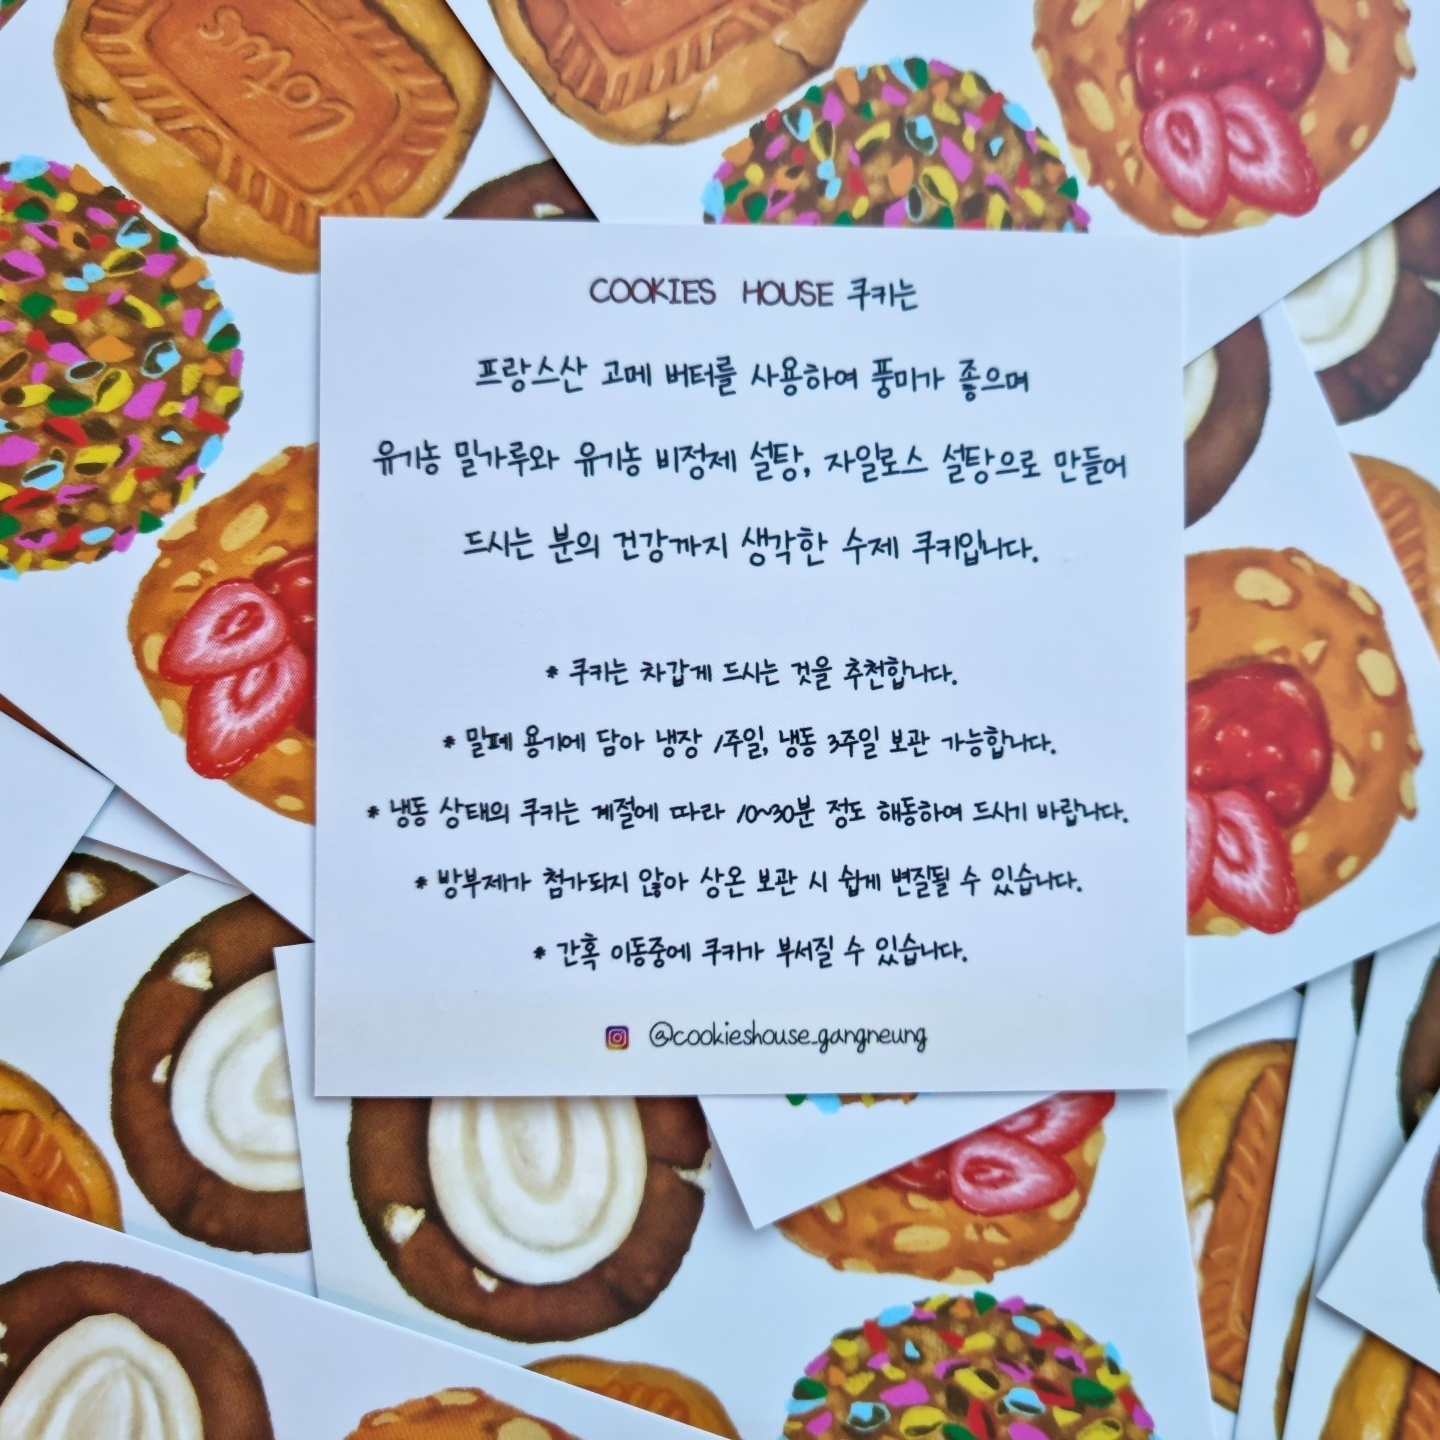 Lotus
COOKIES HOUSE 쿠키는
프랑스산 고메 버터를 사용하여 풍미가 좋으며
유기농 밀가루와 유기농 비정제 설탕, 자일로스 설탕으로 만들어
드시는 분의 건강까지 생각한 수제 쿠키입니다.
* 쿠키는 차갑게 드시는 것을 추천합니다.
* 밀폐 용기에 담아 냉장 1주일, 냉동 3주일 보관 가능합니다.
* 냉동 상태의 쿠키는 계절에 따라 10~30분 정도 해동하여 드시기 바랍니다.
* 방부제가 첨가되지 않아 상온 보관 시 쉽게 변질될 수 있습니다.
* 간혹 이동중에 쿠키가 부서질 수 있습니다.
@cookieshouse_gangneung